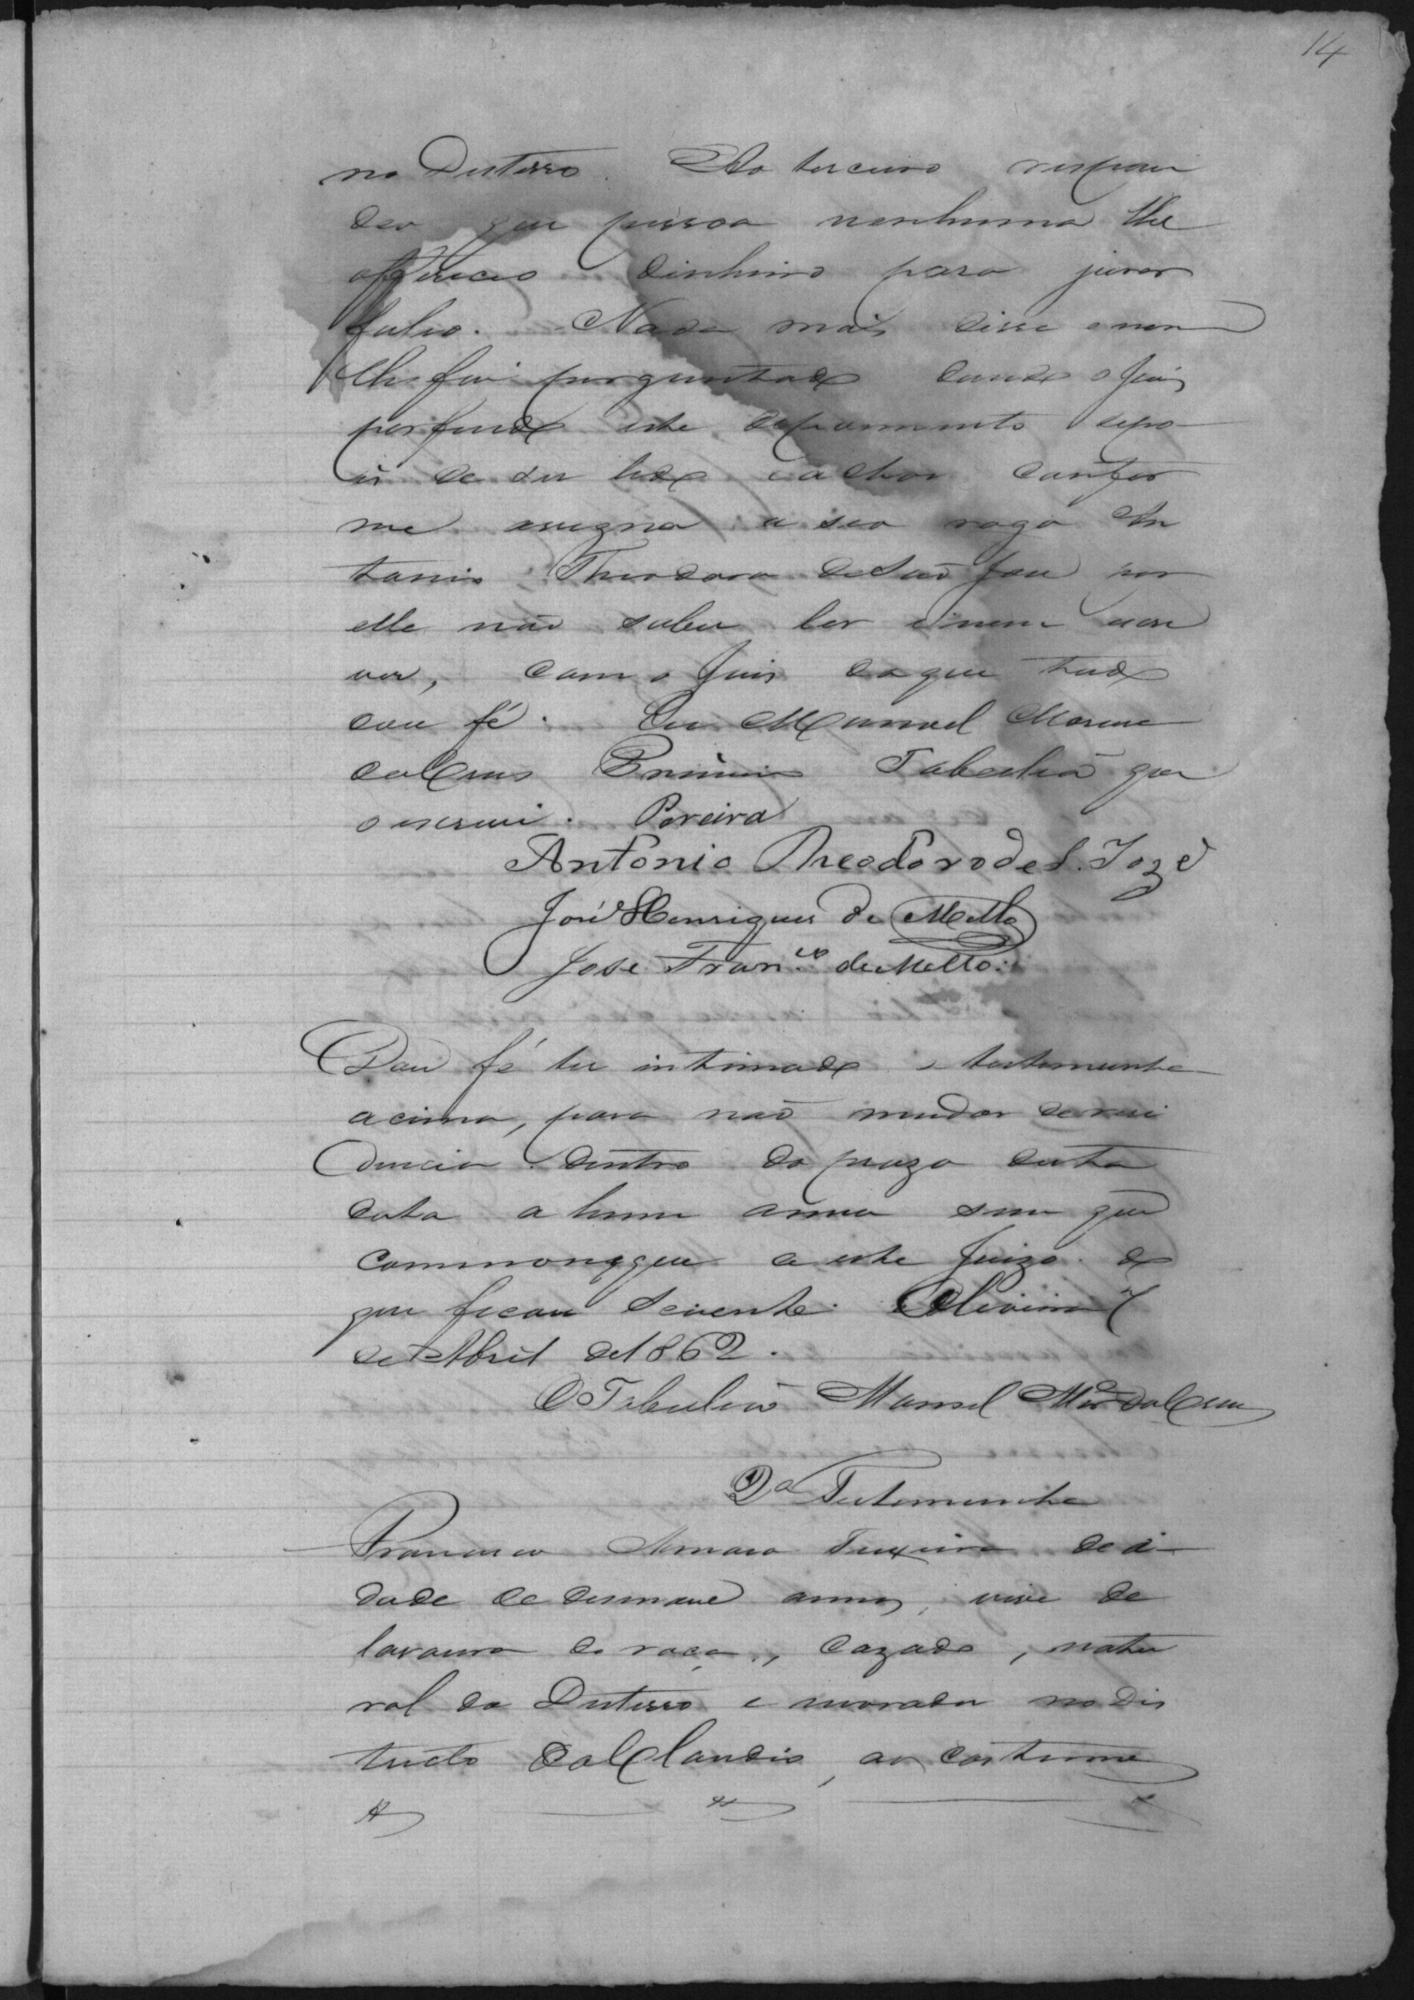 14
no Desterro. Ao terceiro respon
deo que pessoa nenhuma lhe
offereceo dinheiro para jurar
falso. Nada mais disse e nem
lhe foi perguntado dando o Juis
por findo este depoimento depo-
is de ser lido e achar confor
me assigna a seo rogo An
tonio Theodoro de São Jose por
elle não saber ler e nem escre
ver, com o Juis do que tudo
dou fé. Eu Manoel Moreira
da Crus Primeiro Tabelião que
o escrevi. Pereira
Antonio Theodoro de S. Joze
José Henriques de Mello
Jose Fran.co de Mello
Dou fé ter intimado a testemunha
acima, para não mudar de resi
dencia dentro do prazo desta
data a hum anno sem que
communique a este Juizo do
que ficou sciente.
de Abril de 1862.
O Tabelião Manoel Mor.a da Crus
2a Testemunha
Francisco Amaro Teixeira de i-
dade de desnove annos, vive de
lavoura de roça, cazado, natu
ral do Desterro e morador no dis
tricto do Claudio, aos costumes